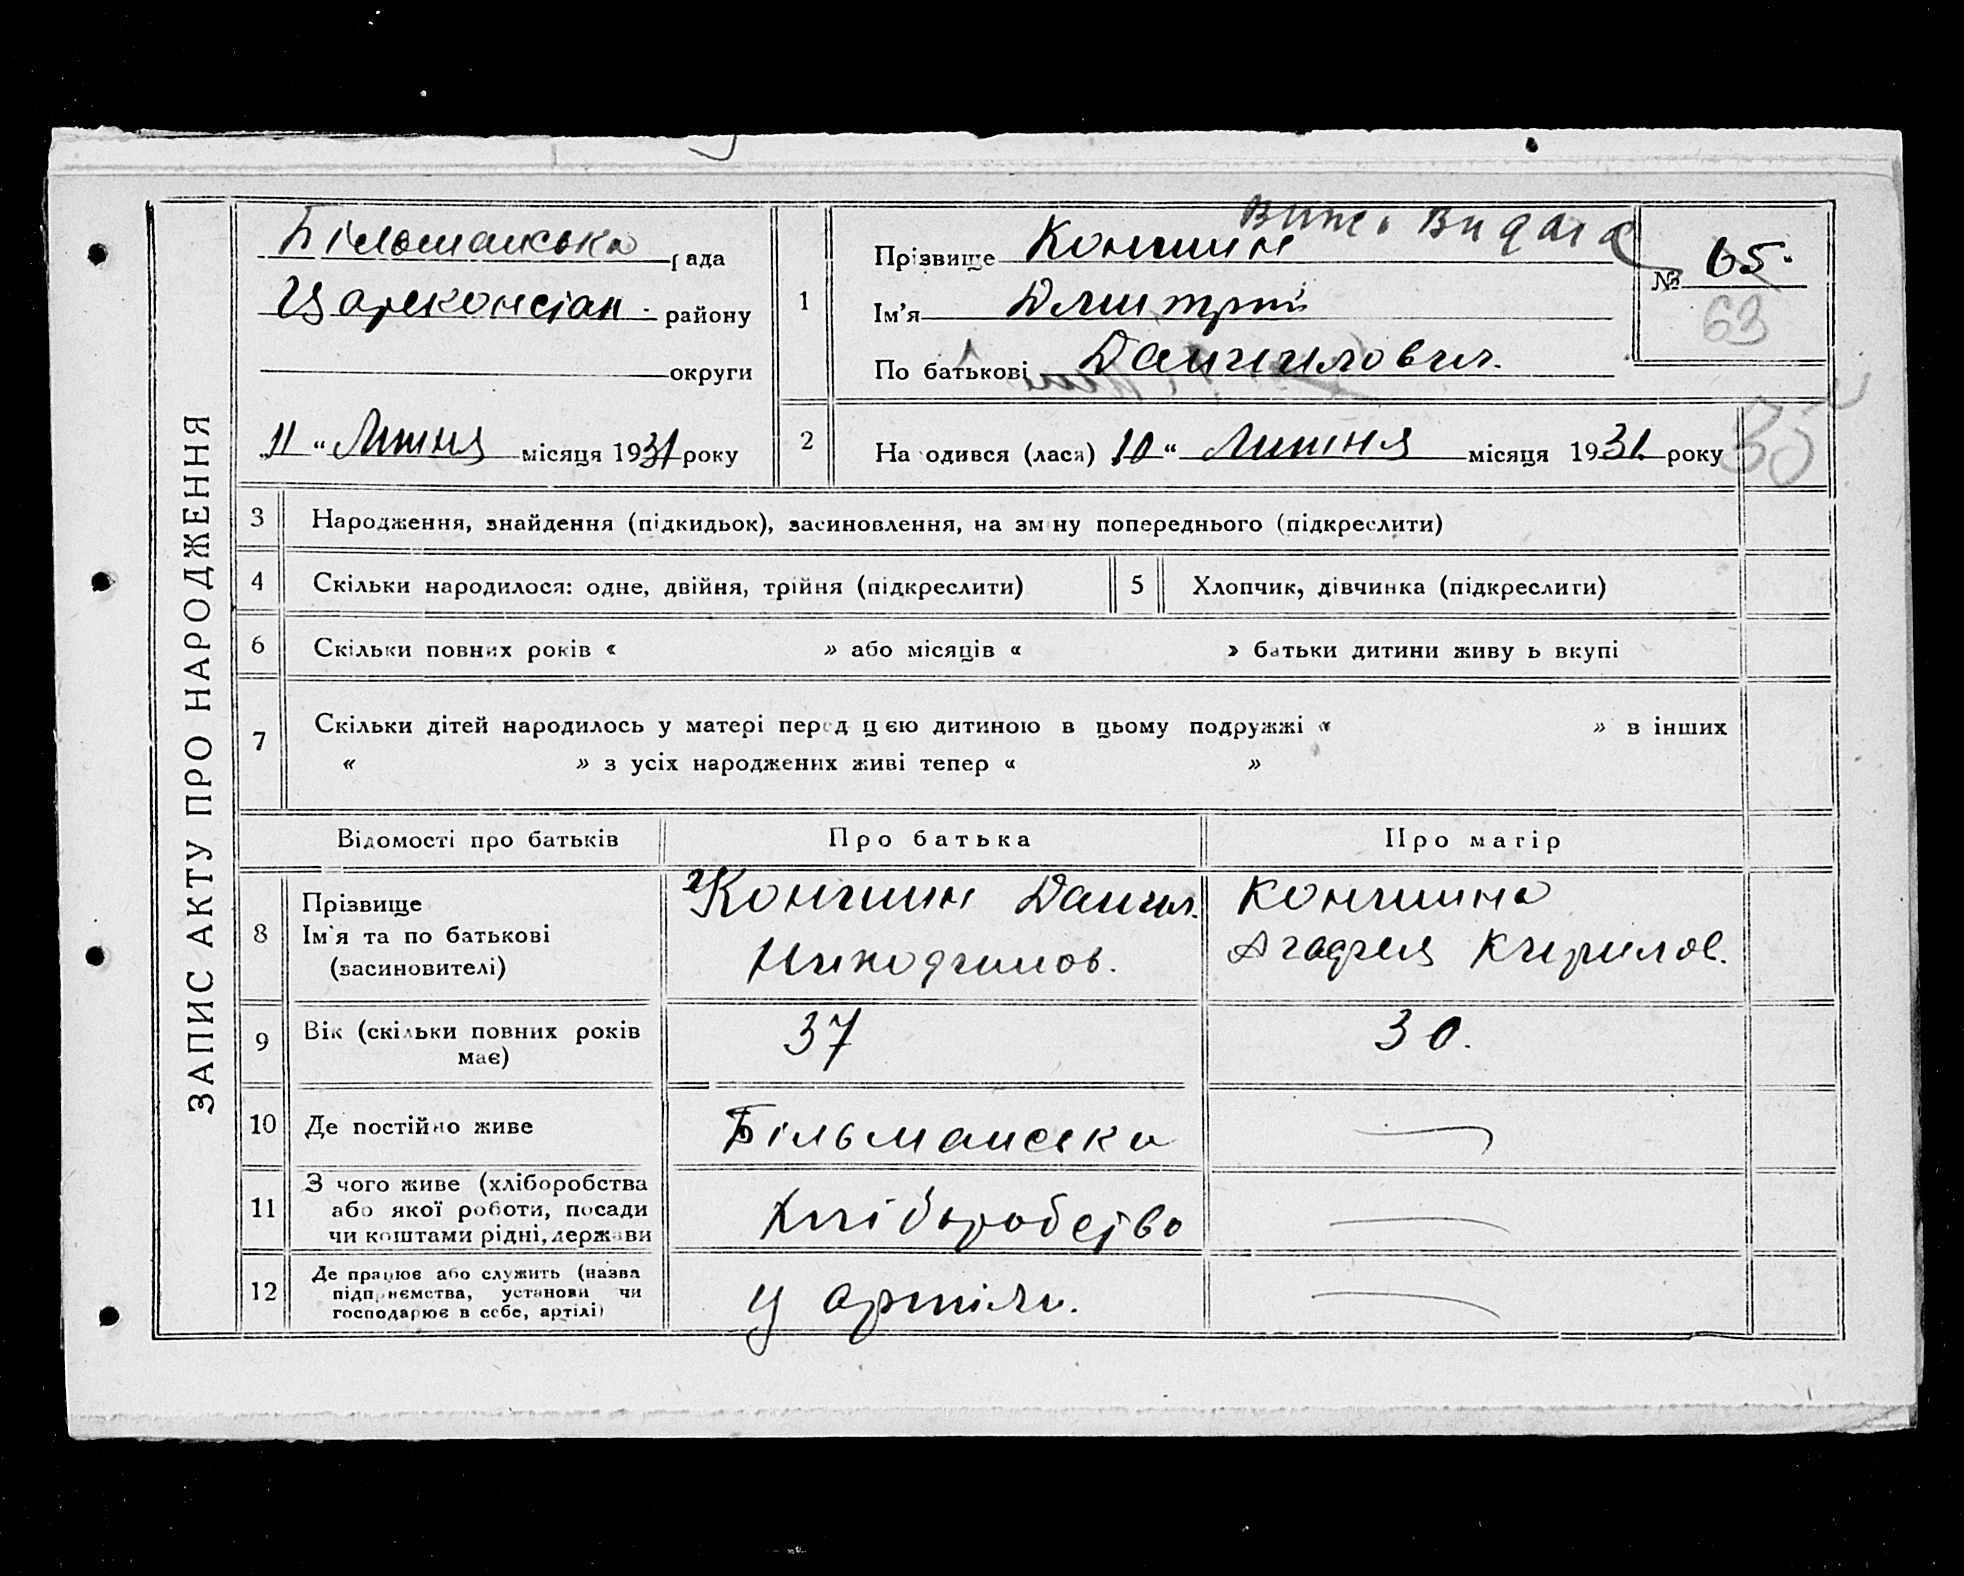 ЗАПИС АКТУ ПРО НАРОДЖЕННЯ
Більманська рада
Царекопстан. району
округи
11 “ Липня місяця 1931 року
1
Випс. видала
Прізвище Коншин
Ім'я Дмитрий
По батькові Даниилович.
№ 65.
63
2
Народився (лася) 10 “ Липня місяця 1931. року
35
3 Народження, знайдення (підкидьок), засиновлення, на зміну попереднього (підкреслити)
4 Скільки народилося: одне, двійня, трійня (підкреслити) 5 Хлопчик, дівчинка (підкреслити)
6 Скільки повних років « » або місяців « » батьки дитини живуть вкупі
7 Скільки дітей народилось у матері перед цією дитиною в цьому подружжі « » в інших
« » з усіх народжених живі тепер « »
Відомості про батьків Про батька Про матір
8 Прізвище Ім'я та по батькові (засиновителі)
Коншин Даниил. Никодимов.
Коншина Агафия Кирилов.
9 Вік (скільки повних років має) 37 30.
10 Де постійно живе Більманська
11 З чого живе (хліборобства або якої роботи, посади чи коштами рідні, держави Хліборобство
12 Де працює або служить (назва підприємства, установи чи господарює в себе, артілі) у артіли.